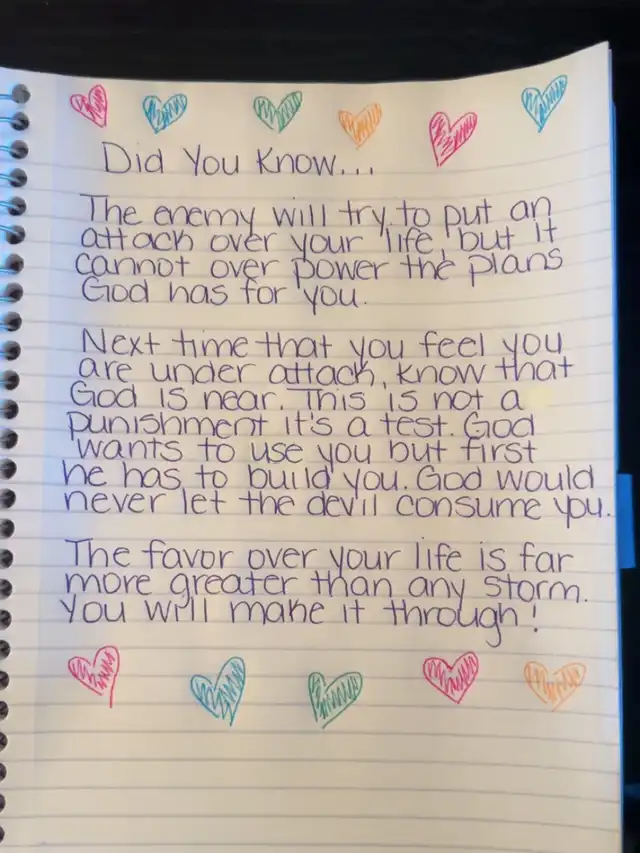 Did You Know...
The enemy will try to put an
attack over your life, but it
cannot over power the plans
God has for you.
Next time that you feel you
are under attack, know that
God is near. This is not a
punishment it's a test. God
wants to use you but first
he has to build you. God would
never let the devil consume you.
The favor over your life is far
more greater than any storm.
You will make it through!